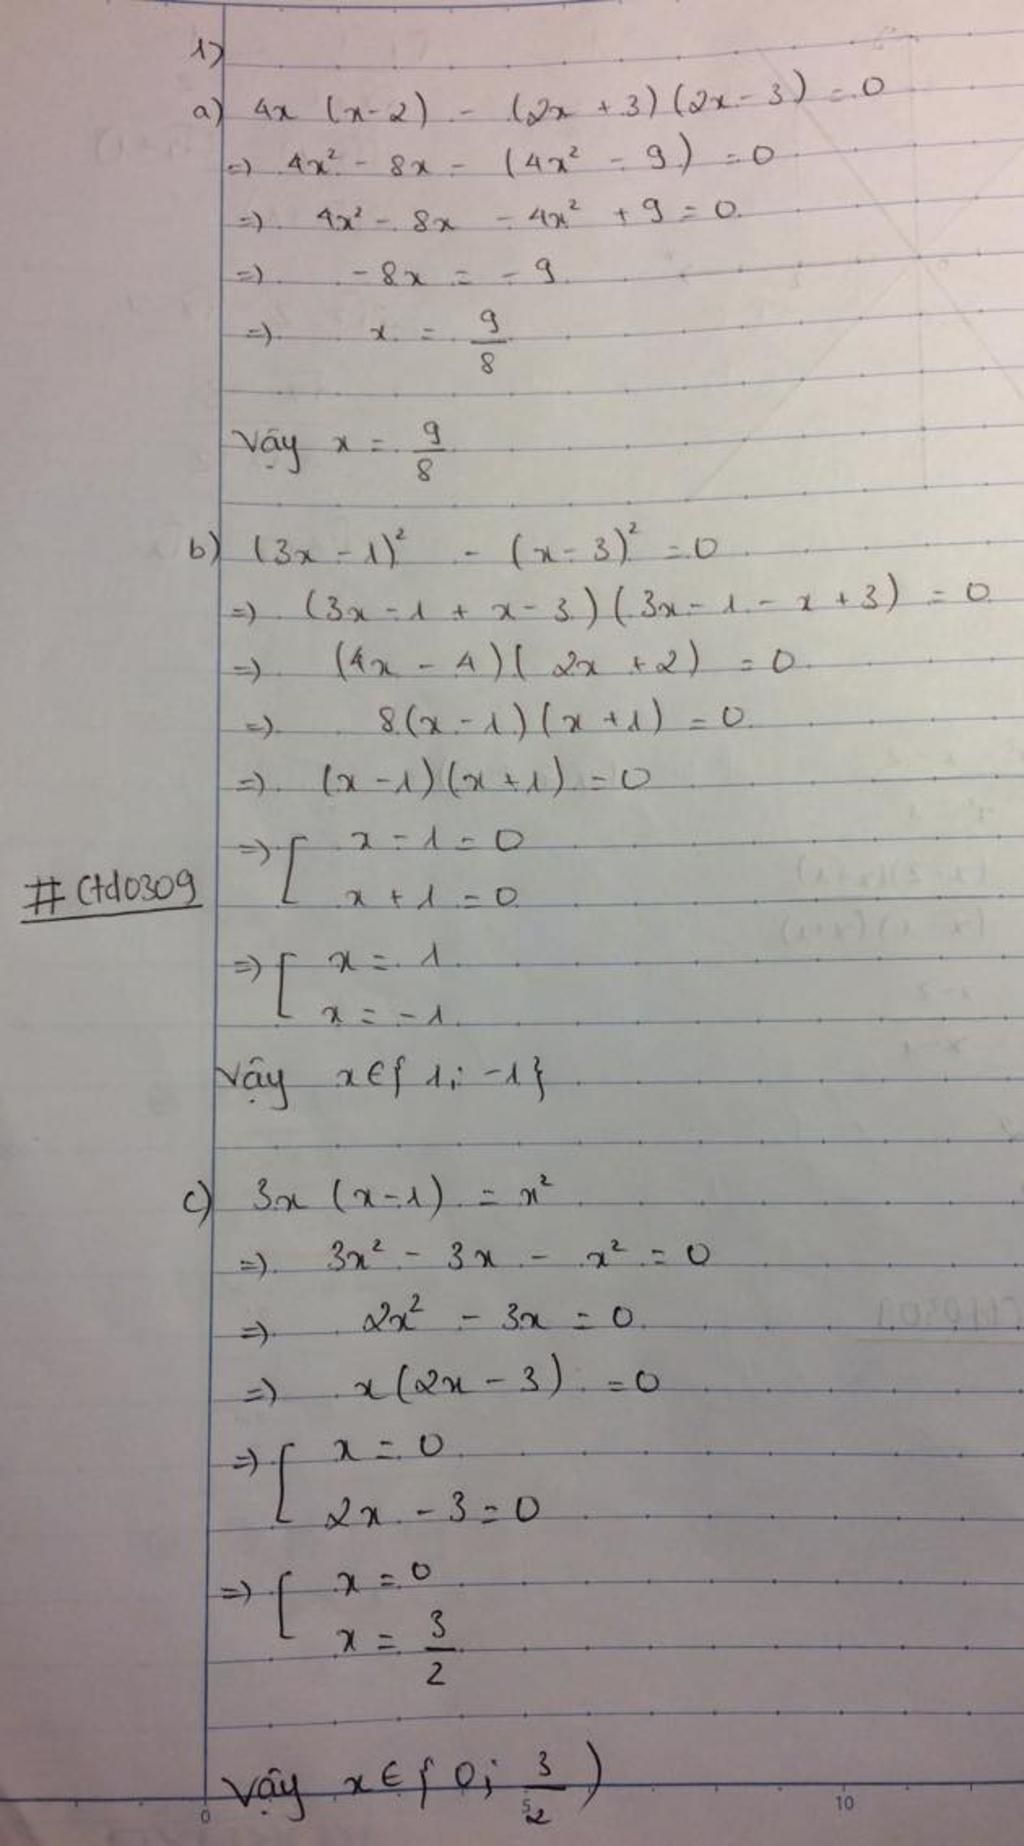 1)
a) 4x (x-2) - (2x + 3)(2x - 3) = 0
=) 4x² - 8x - (4x² - 9) = 0
=) 4x² - 8x - 4x² + 9 = 0
=) -8x = -9
=) x = 9/8
Vậy x = 9/8
b) (3x - 1)² - (x - 3)² = 0
=) (3x - 1 + x - 3)(3x - 1 - x + 3) = 0
=) (4x - 4)(2x + 2) = 0
=) 8(x - 1)(x + 1) = 0
=) (x - 1)(x + 1) = 0
=) [ x - 1 = 0
x + 1 = 0
# Ctd0309
=) [ x = 1
x = -1
Vậy x ∈ { 1; -1}
c) 3x (x-1) = x²
=) 3x² - 3x - x² = 0
=) 2x² - 3x = 0
=) x(2x - 3) = 0
=) [ x = 0
2x - 3 = 0
=) [ x = 0
x = 3/2
Vậy x ∈ { 0; 3/2 )
0 5 10